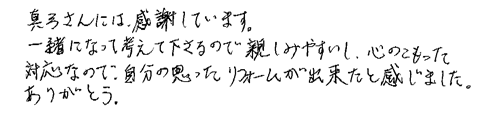 真弓さんには、感謝しています。
一緒になって考えて下さるので親しみやすいし、心のこもった
対応なので、自分の思ったリフォームが出来たと感じました。
ありがとう。